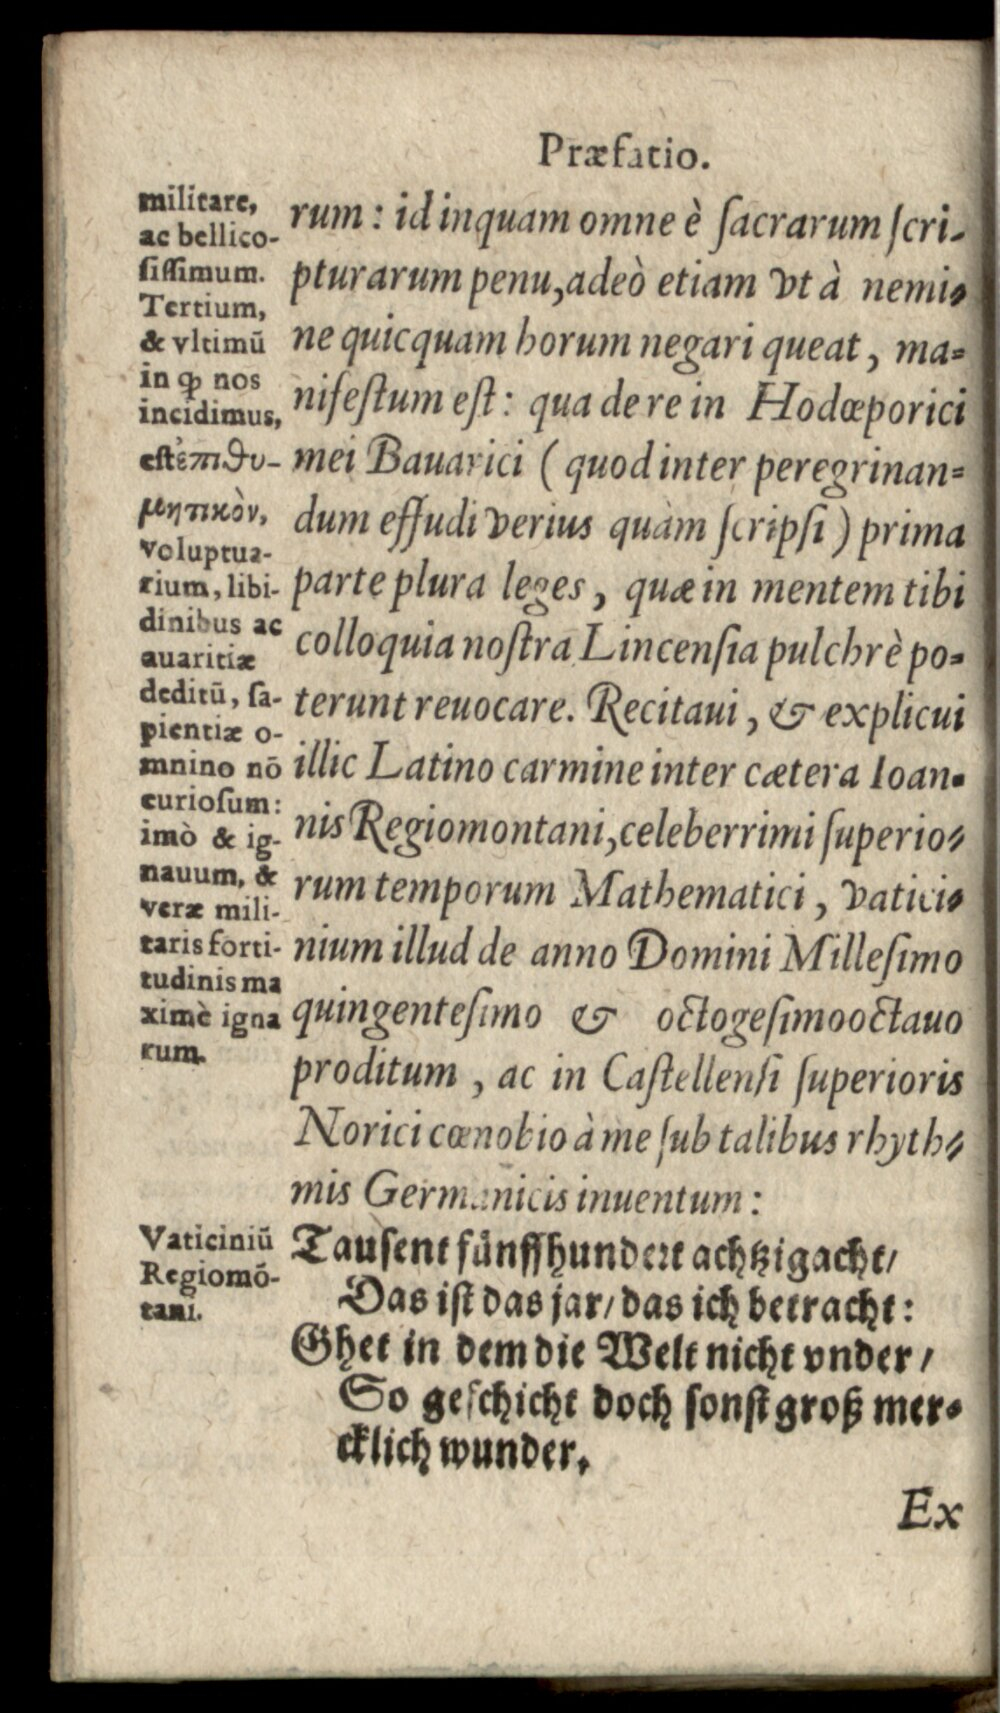 Præfatio.
militare,
ac bellico-
ſiſſimum.
Tertium,
& vltimū
in ꝙ nos
incidimus,
est ἐπιθυ-
μητικὸν,
voluptua-
rium, libi-
dinibus ac
auaritiæ
deditū, ſa-
pientiæ o-
mnino nō
curioſum:
imò & ig-
nauum, &
veræ mili-
taris forti-
tudinis ma
ximè igna
rum.
rum: id inquam omne è ſacrarum ſcri-
pturarum penu, adeò etiam vt à nemi-
ne quicquam horum negari queat, ma-
nifeſtum eſt: qua de re in Hodœporici
mei Bauarici (quod inter peregrinan-
dum effudi verius quàm ſcripſi) prima
parte plura leges, quæ in mentem tibi
colloquia noſtra Lincenſia pulchrè po-
terunt reuocare. Recitaui, & explicui
illic Latino carmine inter cætera Ioan-
nis Regiomontani, celeberrimi ſuperio-
rum temporum Mathematici, vatici-
nium illud de anno Domini Milleſimo
quingenteſimo & octogeſimooctauo
proditum, ac in Caſtellenſi ſuperioris
Norici cœnobio à me ſub talibus rhyth-
mis Germanicis inuentum:
Vaticiniū
Regiomō-
tani.
Tauſent fünffhundert achtzigacht/
Das iſt das jar/ das ich betracht:
Ghet in dem die Welt nicht vnder/
So geſchicht doch ſonſt groß mer-
cklich wunder.
Ex